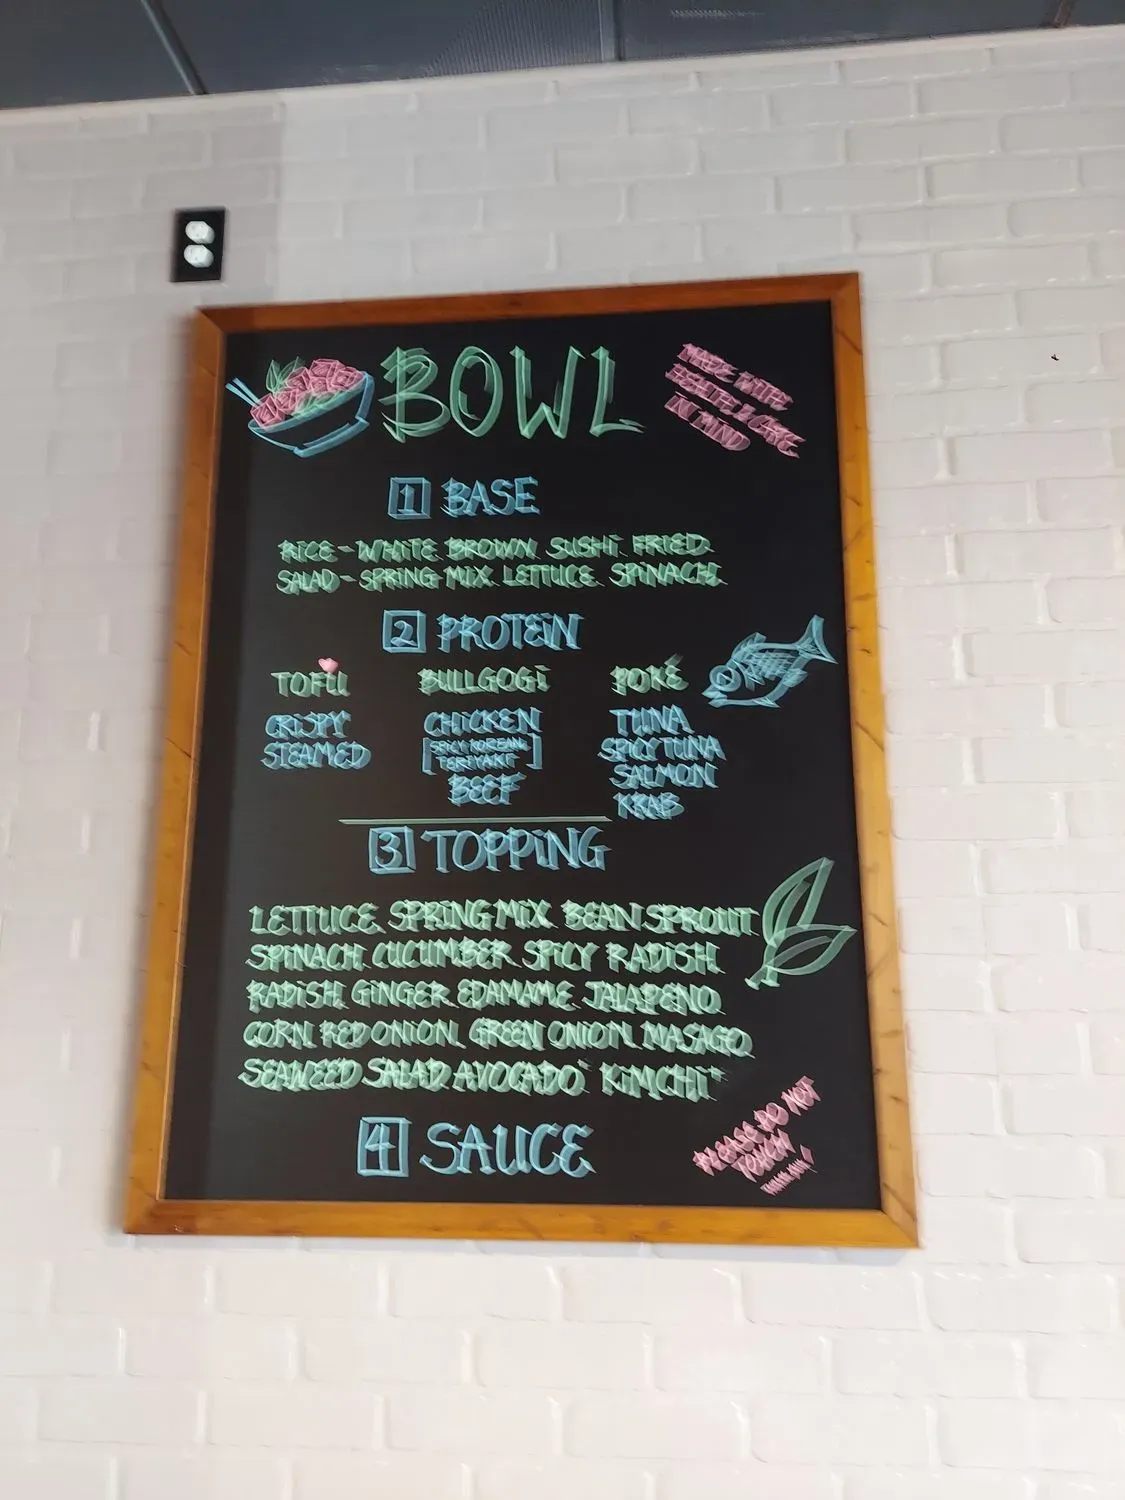 BOWL
MADE WITH
HEALTH & CARE
IN MIND
1 BASE
RICE - WHITE BROWN SUSHI FRIED
SALAD - SPRING MIX LETTUCE SPINACH
2 PROTEIN
TOFU BULLGOGI POKÉ
CRISPY
STEAMED
CHICKEN
[SPICY KOREAN
TERIYAKI]
BEEF
TUNA
SPICY TUNA
SALMON
KRAB
3 TOPPING
LETTUCE SPRING MIX BEAN SPROUT
SPINACH CUCUMBER SPICY RADISH
RADISH GINGER EDAMAME JALAPENO
CORN RED ONION GREEN ONION MASAGO
SEAWEED SALAD AVOCADO KIMCHI
4 SAUCE
PLEASE DO NOT
TOUCH